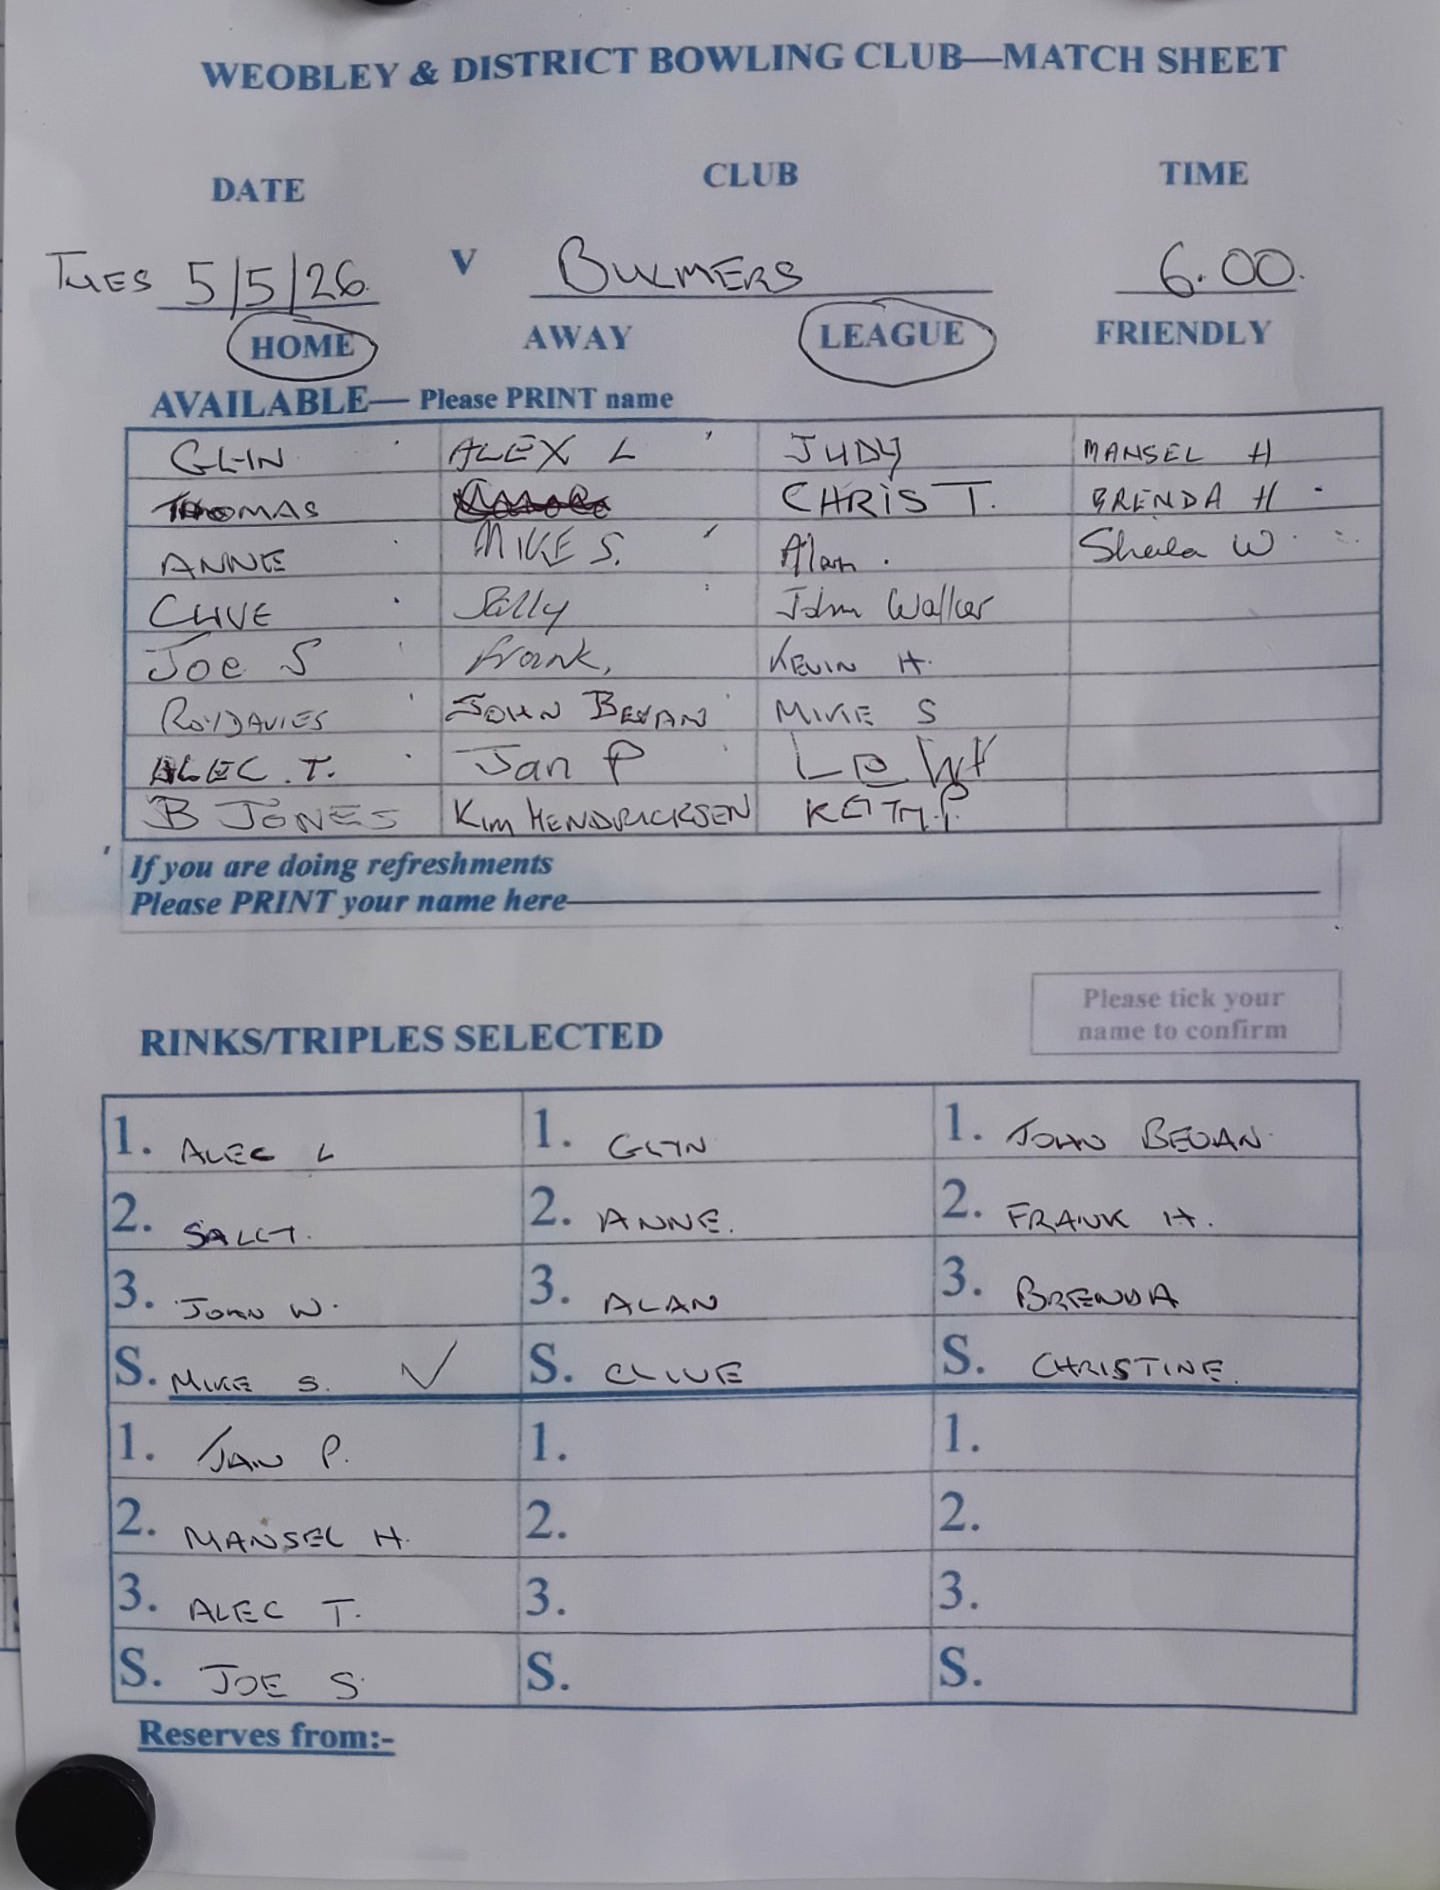 WEOBLEY & DISTRICT BOWLING CLUB—MATCH SHEET
DATE CLUB TIME
TUES 5/5/26 V BULMERS 6.00.
HOME AWAY LEAGUE FRIENDLY
AVAILABLE— Please PRINT name
GLYN ALEX L JUDY MANSEL H
THOMAS CHRIS T. BRENDA H
ANNE MIKE S. Alan. Sheila W
CLIVE Sally John Walker
JOE S Frank, KEVIN H.
ROY DAVIES JOHN BEVAN MIKE S
ALEC. T. Jan P
B JONES KIM HENDRICKSEN KEITH.P.
If you are doing refreshments
Please PRINT your name here
Please tick your
name to confirm
RINKS/TRIPLES SELECTED
1. ALEC L 1. GLYN 1. JOHN BEVAN
2. SALLY. 2. ANNE. 2. FRANK H.
3. JOHN W. 3. ALAN 3. BRENDA
S. MIKE S. ✓ S. CLIVE S. CHRISTINE.
1. JAN P. 1. 1.
2. MANSEL H. 2. 2.
3. ALEC T. 3. 3.
S. JOE S. S. S.
Reserves from:-